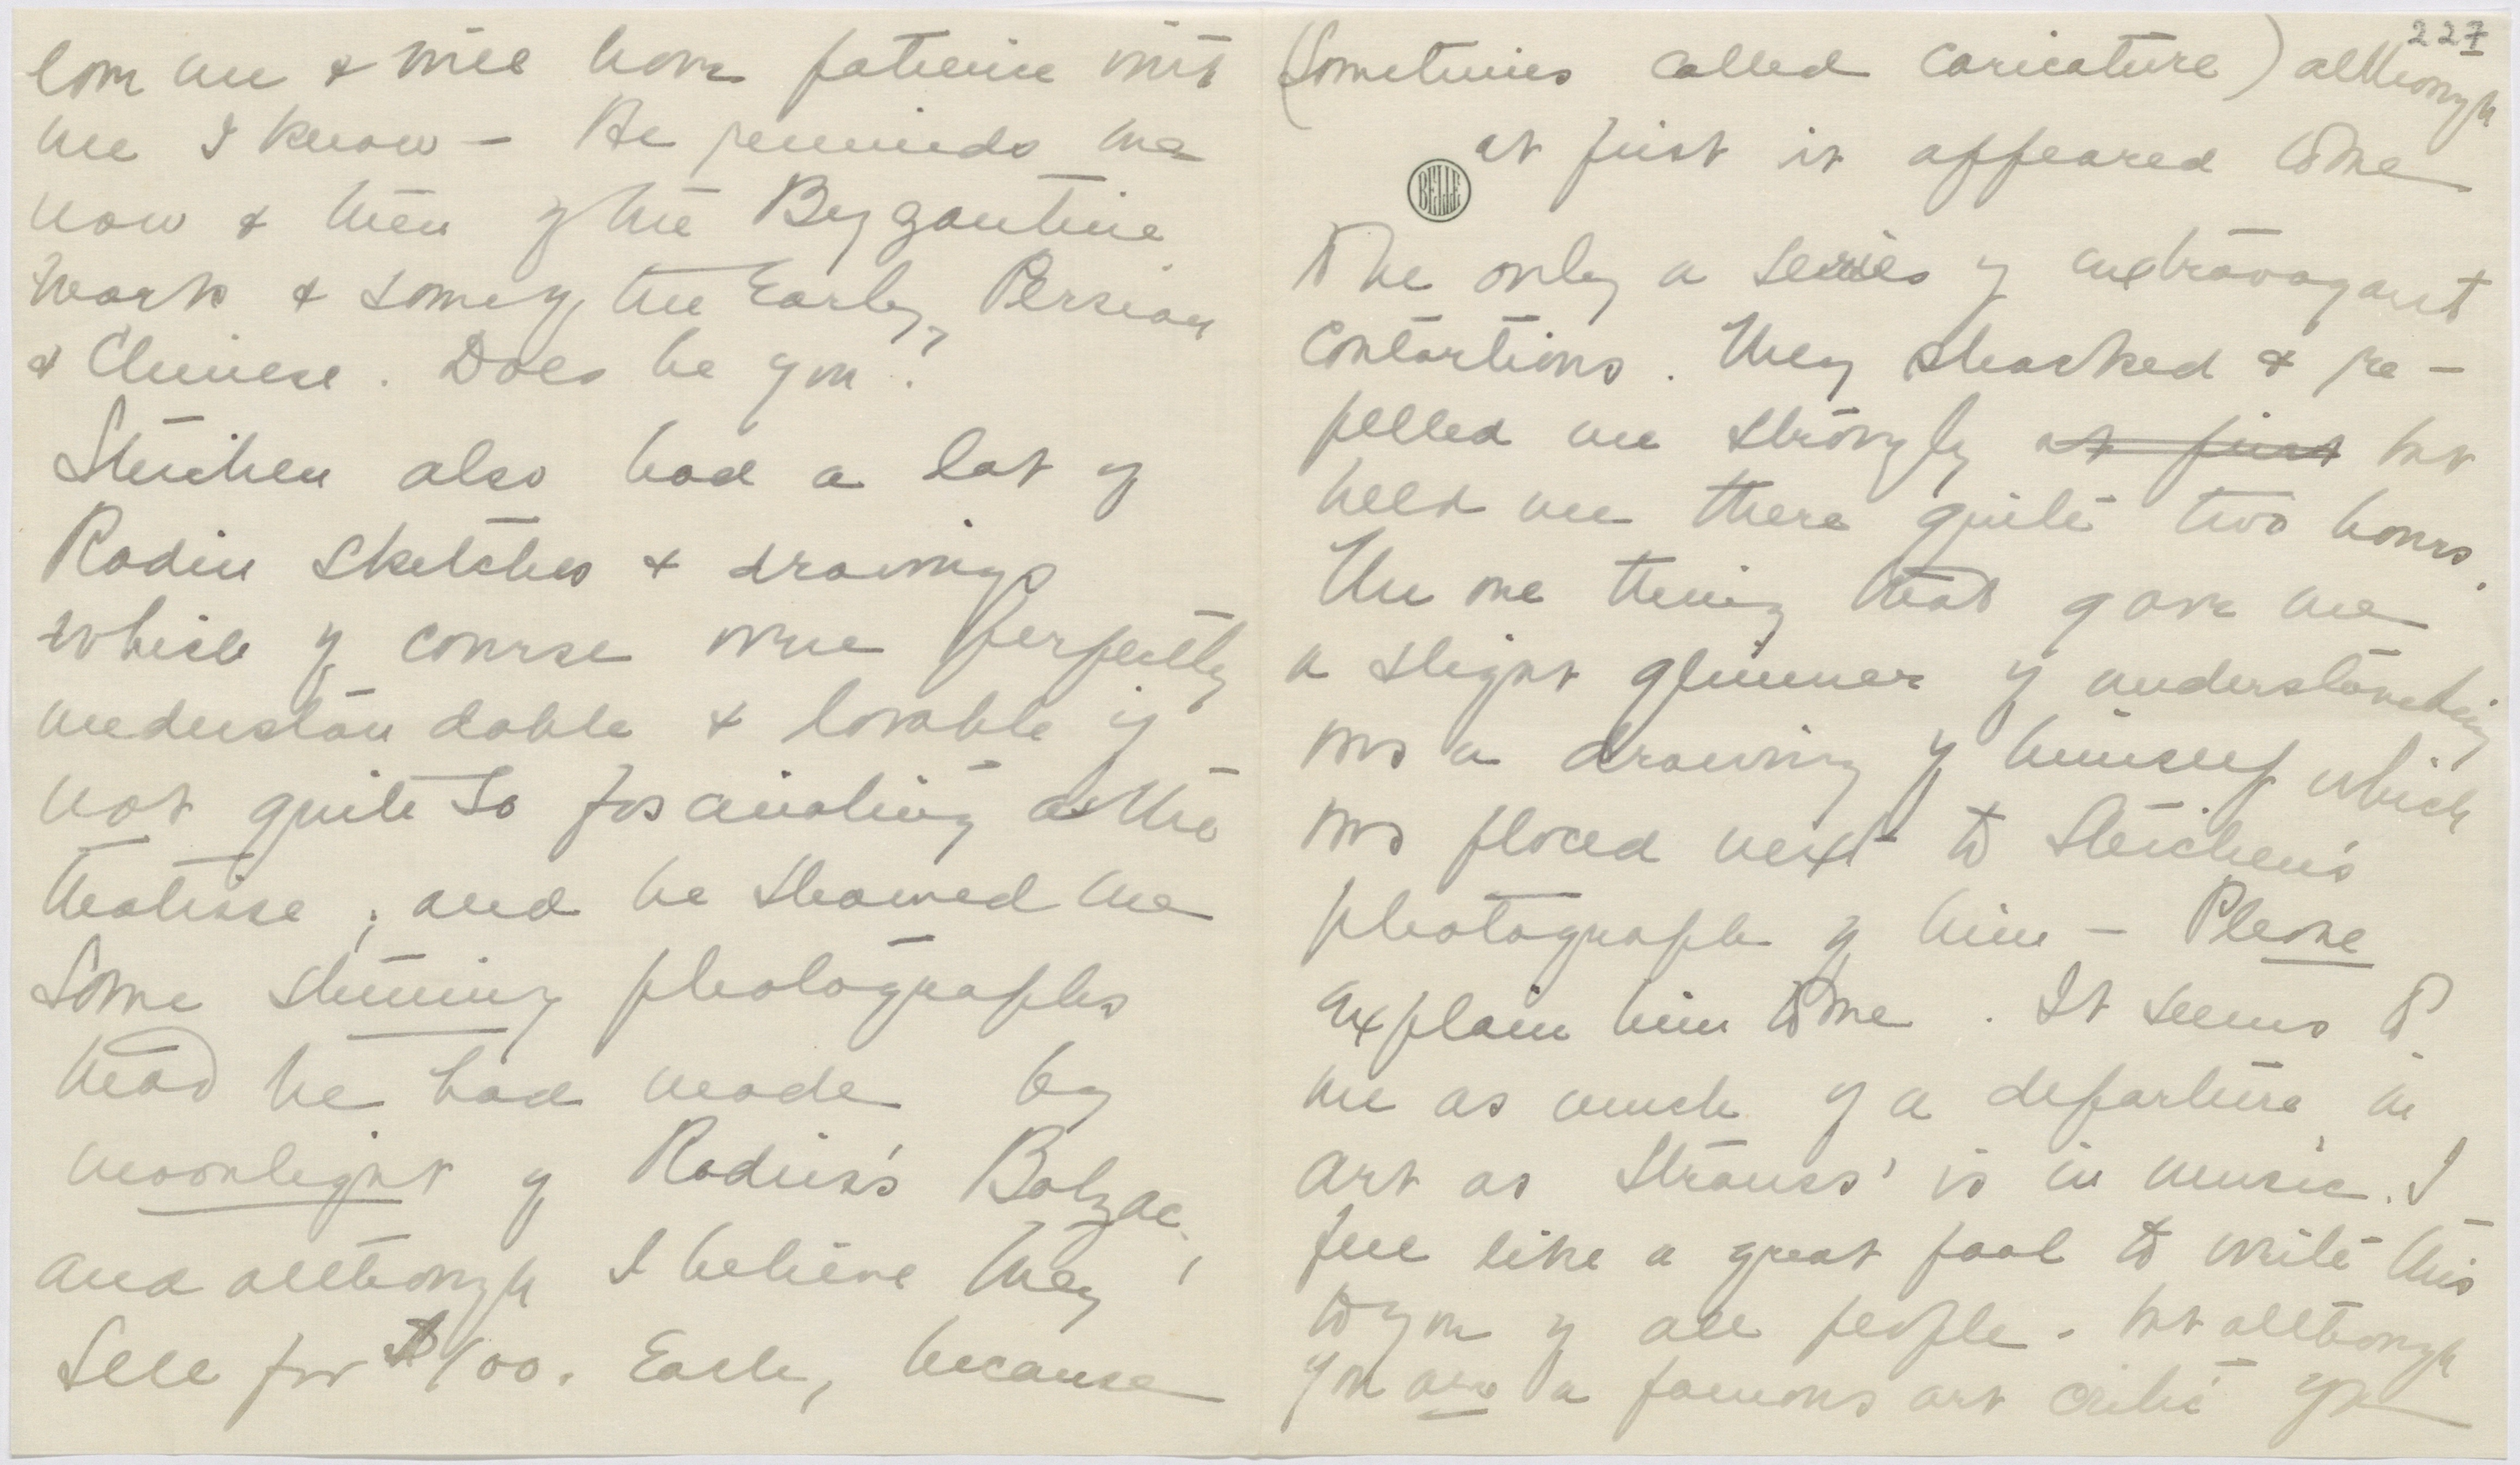 love me & will have patience with
me I know – He reminds me
now & then of the Byzantine
work & some of the Early Persian
& Chinese. Does he you?
Steichen also had a lot of
Rodin sketches & drawings
which of course were perfectly
understandable & lovable if
not quite so fascinating as the
Matisse; and he showed me
some stunning photographs
that he had made by
moonlight of Rodin's Balzac,
and although I believe they
sell for $100. Each, because
227
(sometimes called caricature) although
at first it appeared to me
BELLE
to be only a series of extravagant
contortions. They shocked & re-
pelled me strongly at first but
held me there quite two hours.
The one thing that gave me
a slight glimmer of understanding
was a drawing of himself which
was placed next to Steichen's
photograph of him – Please
explain him to me. It seems to
me as much of a departure in
art as Strauss' is in music. I
feel like a great fool to write this
to you of all people. but although
you are a famous art critic you